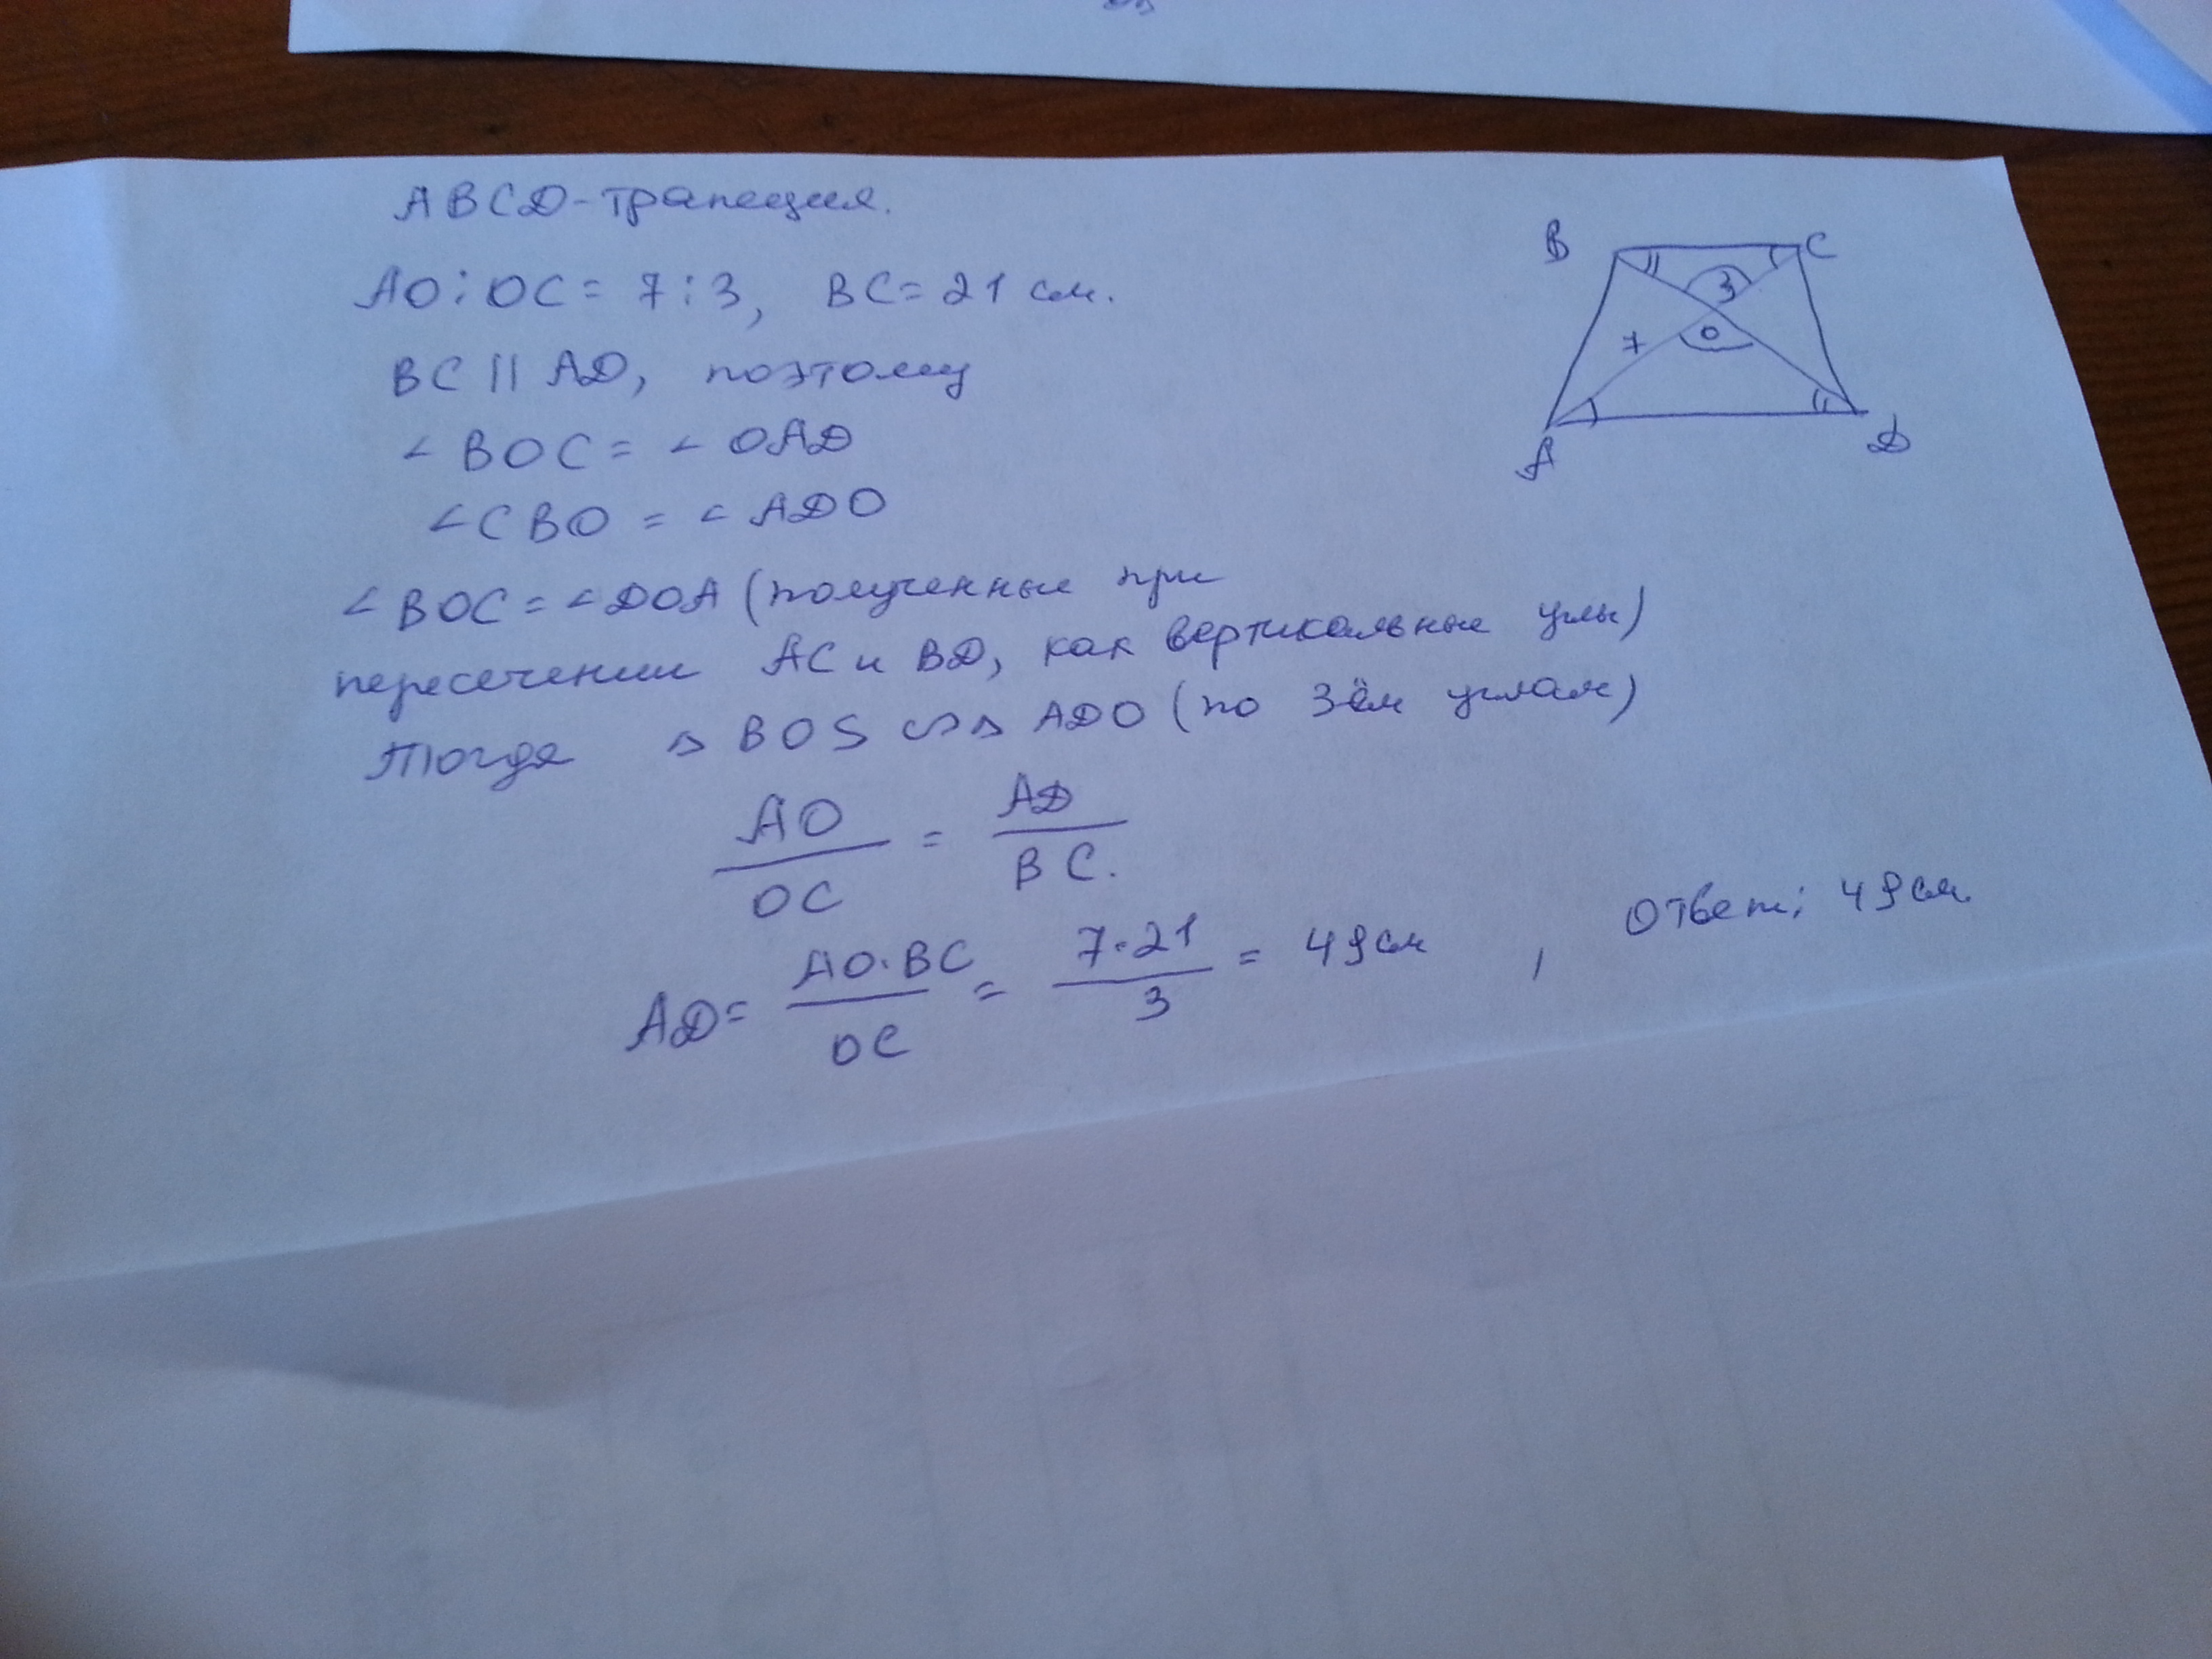 ABCD-трапеция.
AO:OC = 7:3, BC = 21 см.
BC || AD, поэтому
∠ BOC = ∠ OAD
∠ CBO = ∠ ADO
∠ BOC = ∠ DOA (полученные при
пересечении AC и BD, как вертикальные углы)
Тогда △ BOS ∽ △ ADO (по 3ём углам)
AO/OC = AD/BC.
AD = AO·BC/OC = 7·21/3 = 49 см, Ответ: 49 см.
B
C
3
7
O
A
D